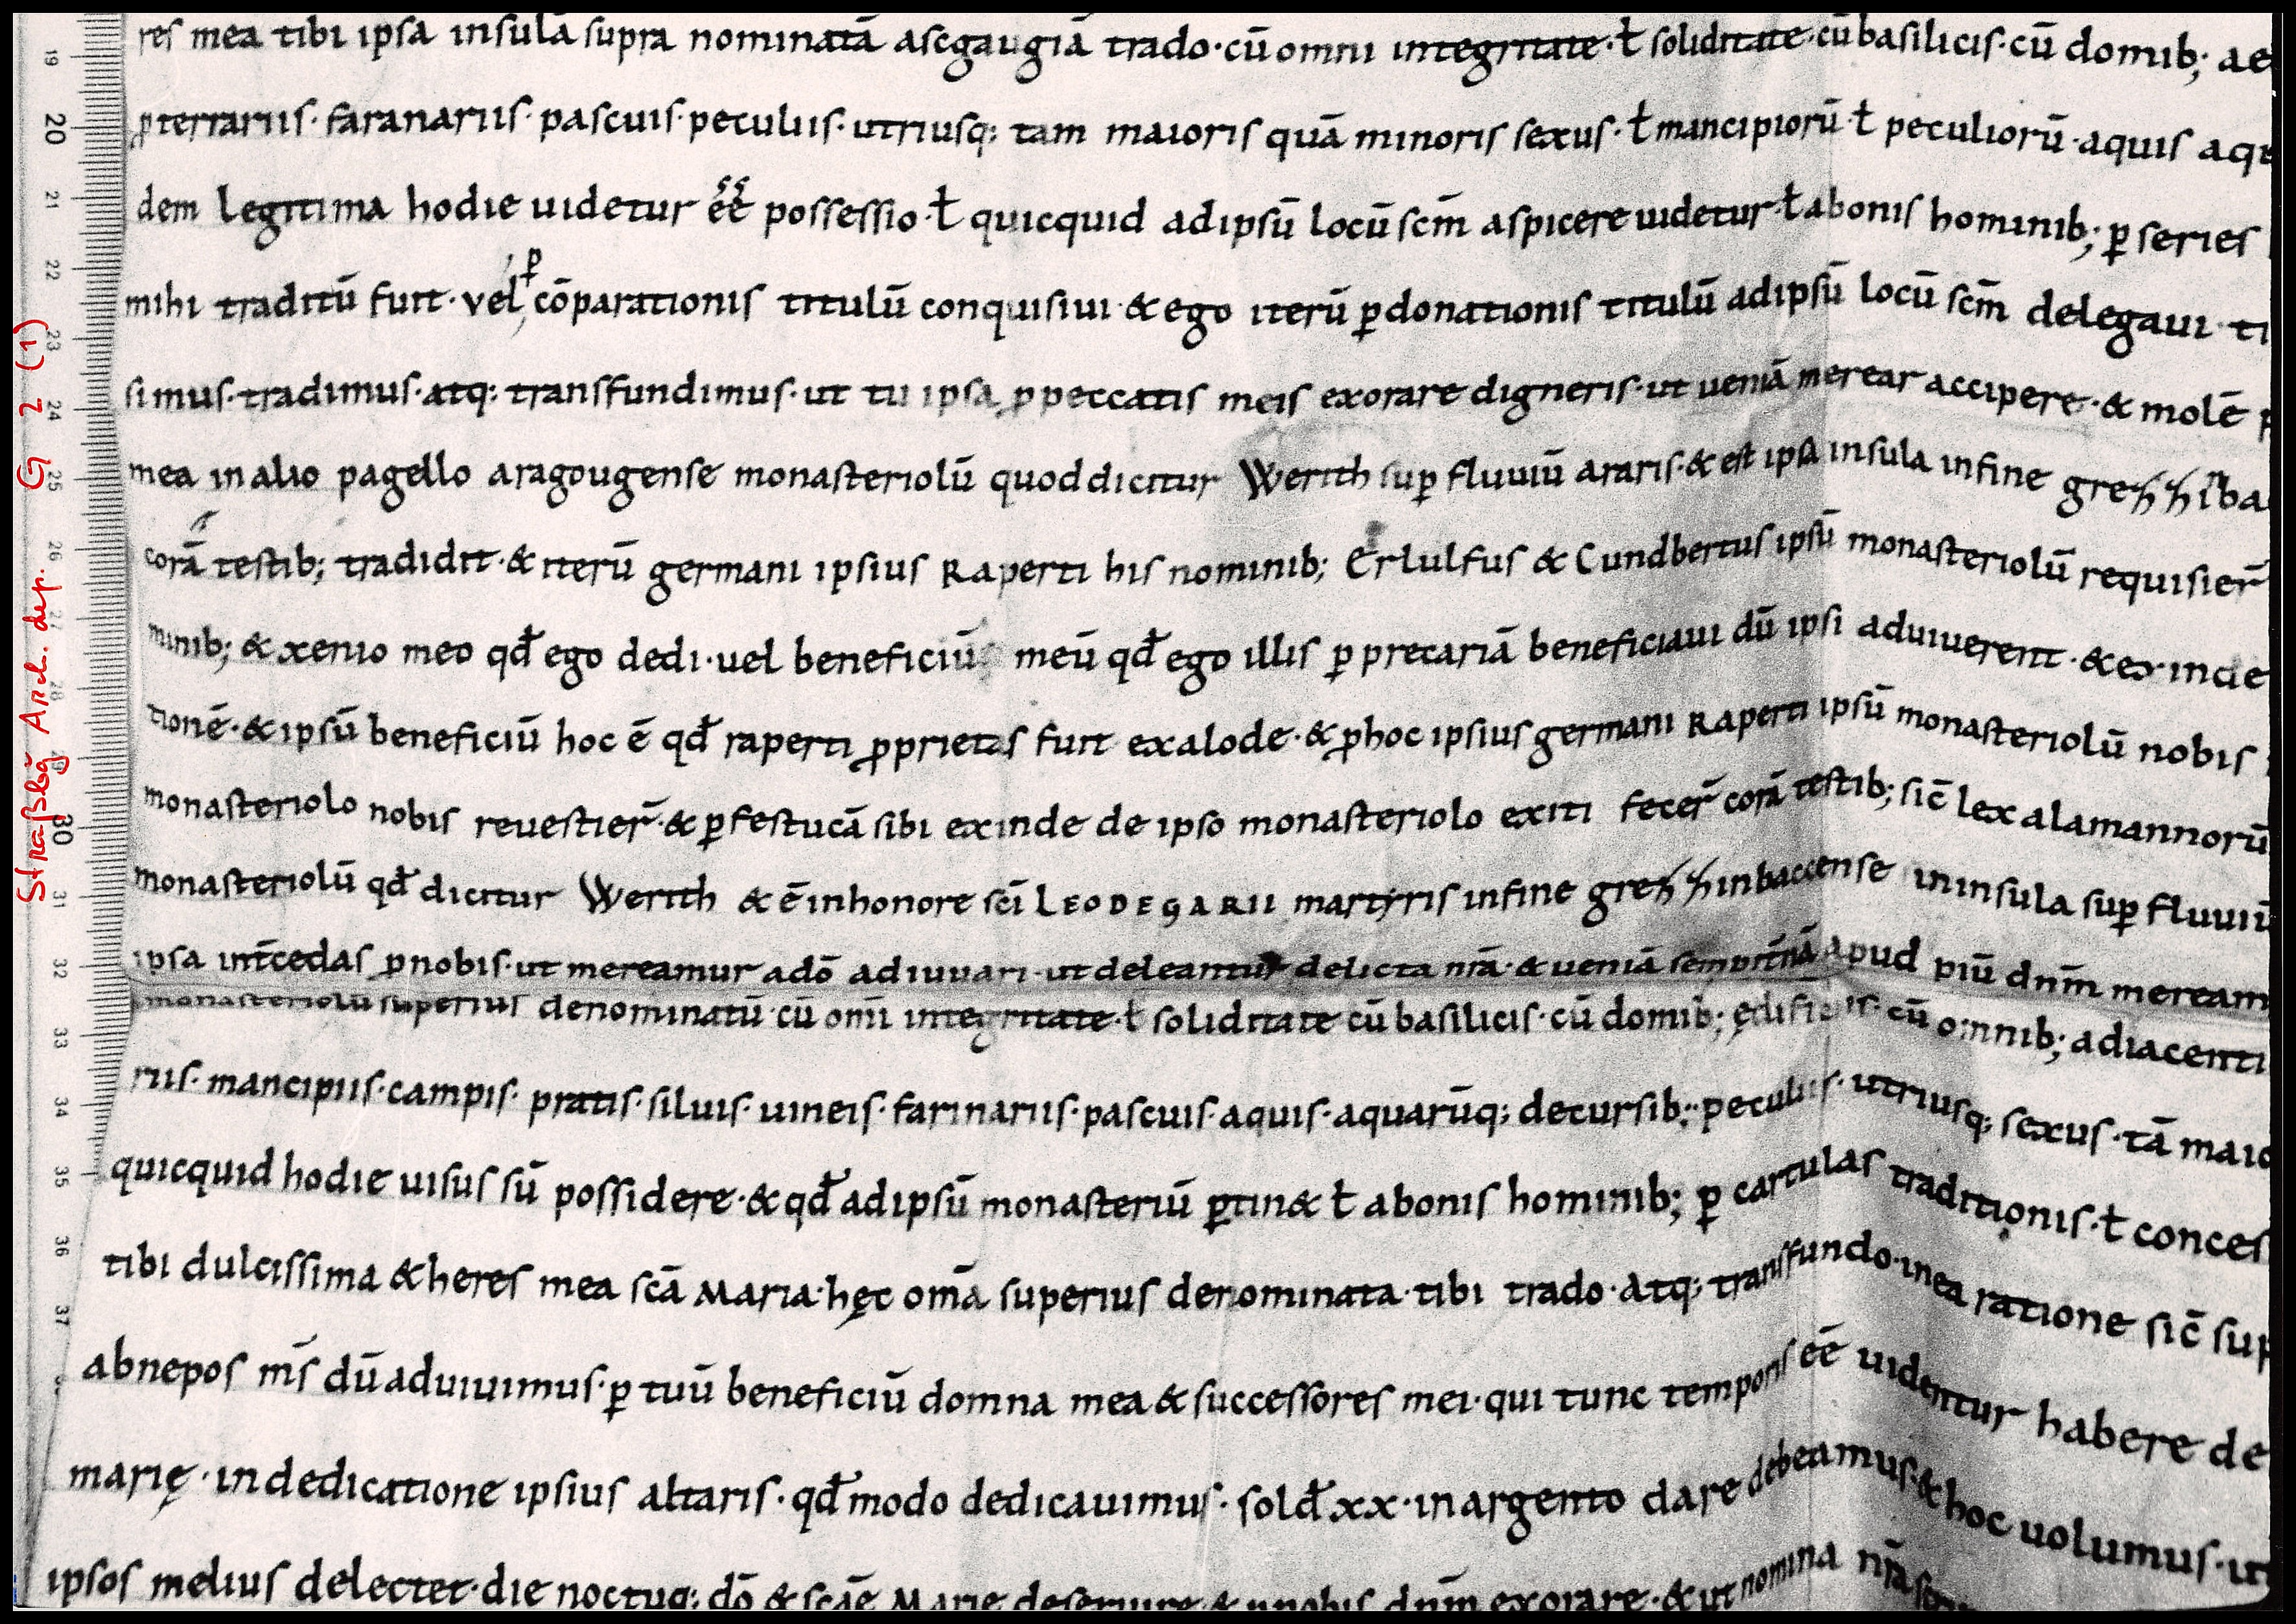 res mea tibi ipsa insulā supra nominatā ascgaugiā trado · cū omni integritate · ł soliditate · cū basilicis · cū domib; ae
pterrariis · faranariis · pascuis · peculiis · utriusq; tam maioris quā minoris sexus · ł mancipiorū · ł peculiorū · aquis aqu
dem legitima hodie uidetur ēē possessio · ł quicquid ad ipsū locū scm̄ aspicere uidetur · ł a bonis hominib; ꝑ series
mihi traditū fuit · vel ꝑ cōparationis titulū conquisiui · & ego iterū ꝑ donationis titulū ad ipsū locū scm̄ delegaui · ti
simus · tradimus · atq; transfundimus · ut tu ipsa ꝓ peccatis meis exorare digneris · ut ueniā merear accipere · & molē
mea in alio pagello aragougense monasteriolū quod dicitur Werith suꝑ fluuiū araris · & est ipsa insula infine
corā testib; tradidit · & iterū germani ipsius Raperti his nominib; Erlulfus & Cundbertus ipsū monasteriolū requisier̄
minib; & xenio meo qđ ego dedi · uel beneficiū meū qđ ego illis ꝑ precariā beneficiaui dū ipsi aduiuerent · & exinde
tionē · & ipsū beneficiū hoc ē qđ raperti ꝓprietas fuit exalode · & ꝓhoc ipsius germani Raperti ipsū monasteriolū nobis
monasteriolo nobis reuestier̄ · & ꝑ festucā sibi exinde de ipso monasteriolo exiti fecer̄ corā testib; sic̄ lex alamannorū
monasteriolū qđ dicitur Werith & ē in honore sci̅ LEODEGARII martyris infine in insula suꝑ fluuiū
ipsa int̄cedas ꝓ nobis · ut mereamur adō adiuuari · ut deleantur delicta nr̄a · & ueniā apud piū dnm̄ meream
monasteriolū superius denominatū · cū om̄i integritate · ł soliditate cū basilicis · cū domib; ędificiis · cū omnib; adiacenti
riis · mancipiis · campis · pratis · siluis · uineis · farinariis · pascuis · aquis · aquarūq; decursib; · peculiis · utriusq; sexus · tā maio
quicquid hodie uisus sū possidere · & qđ ad ipsū monasteriū ꝑtin& ł a bonis hominib; ꝑ cartulas traditionis · ł conces
tibi dulcissima & heres mea scā Maria · hęc om̄a superius denominata · tibi trado · atq; transfundo · inea ratione sic̄ sup
abnepos ms̄ dū aduiuimus · ꝑ tuū beneficiū domna mea & successores mei · qui tunc temporis ēē uidentur habere de
marię · in dedicatione ipsius altaris · qđ modo dedicauimus · solđ xx · in argento dare debeamus · & hoc uolumus · ut
ipsos melius delectet · die noctuq; dō & scāe Marie deseruire & ꝓnobis dnm̄ exorare · & ut nomina nr̄a
19
20
21
22
23
24
25
26
27
28
29
30
31
32
33
34
35
36
37
Straßbg Arch. dep. G 2 (1)